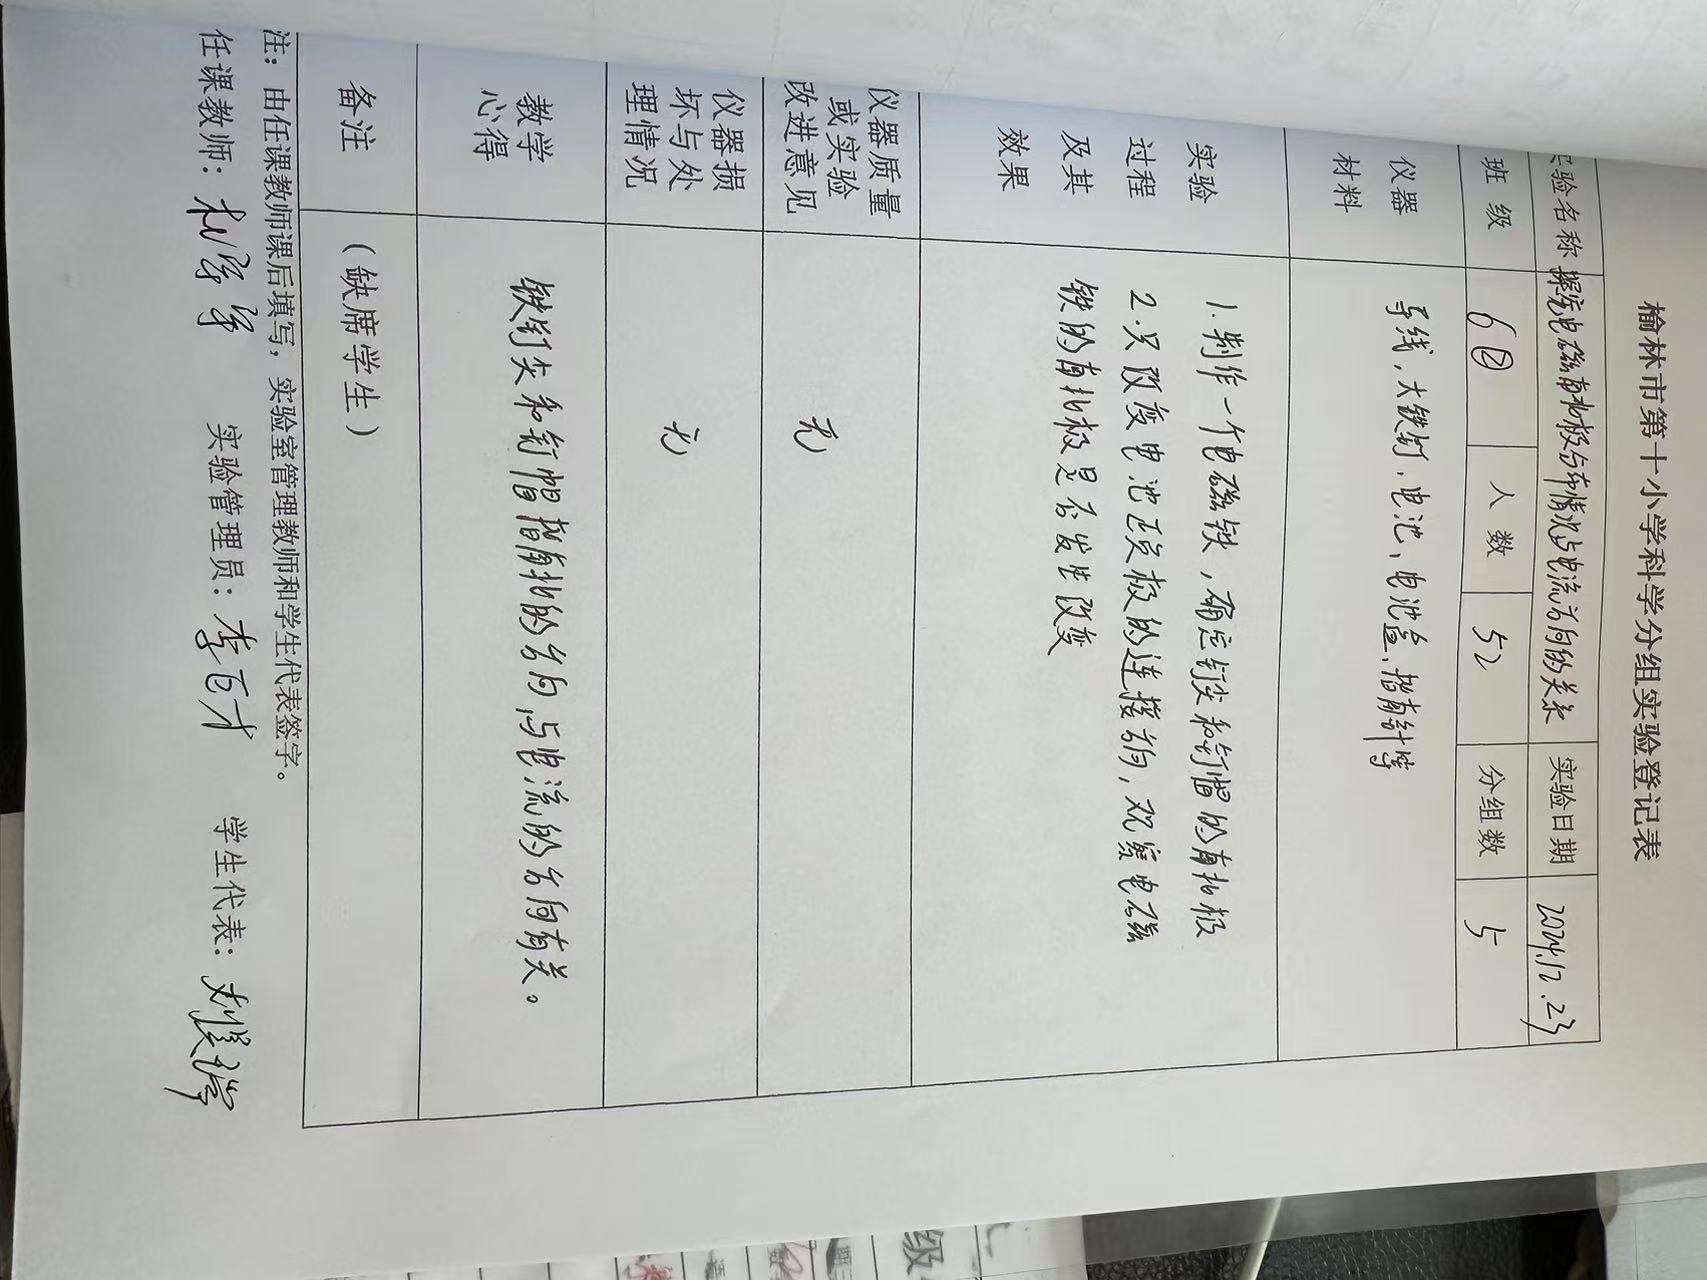 榆林市第十小学科学分组实验登记表
实验名称 探究电磁南北极分布情况与电流方向的关系 实验日期 2024.12.23
班 级 6② 人 数 52 分组数 5
仪器
材料
导线，大铁钉、电池、电池盒、指南针等
实验
过程
及其
效果
1.制作一个电磁铁，确定钉尖和钉帽的南北极
2.只改变电池正负极的连接方向，观察电磁
铁的南北极是否发生改变
仪器质量
或实验
改进意见
无
仪器损
坏与处
理情况
无
教学
心得
铁钉尖和钉帽指南北的方向，与电流的方向有关。
备注
（缺席学生）
注：由任课教师课后填写，实验室管理教师和学生代表签字。
任课教师： 实验管理员：李百才 学生代表：
级